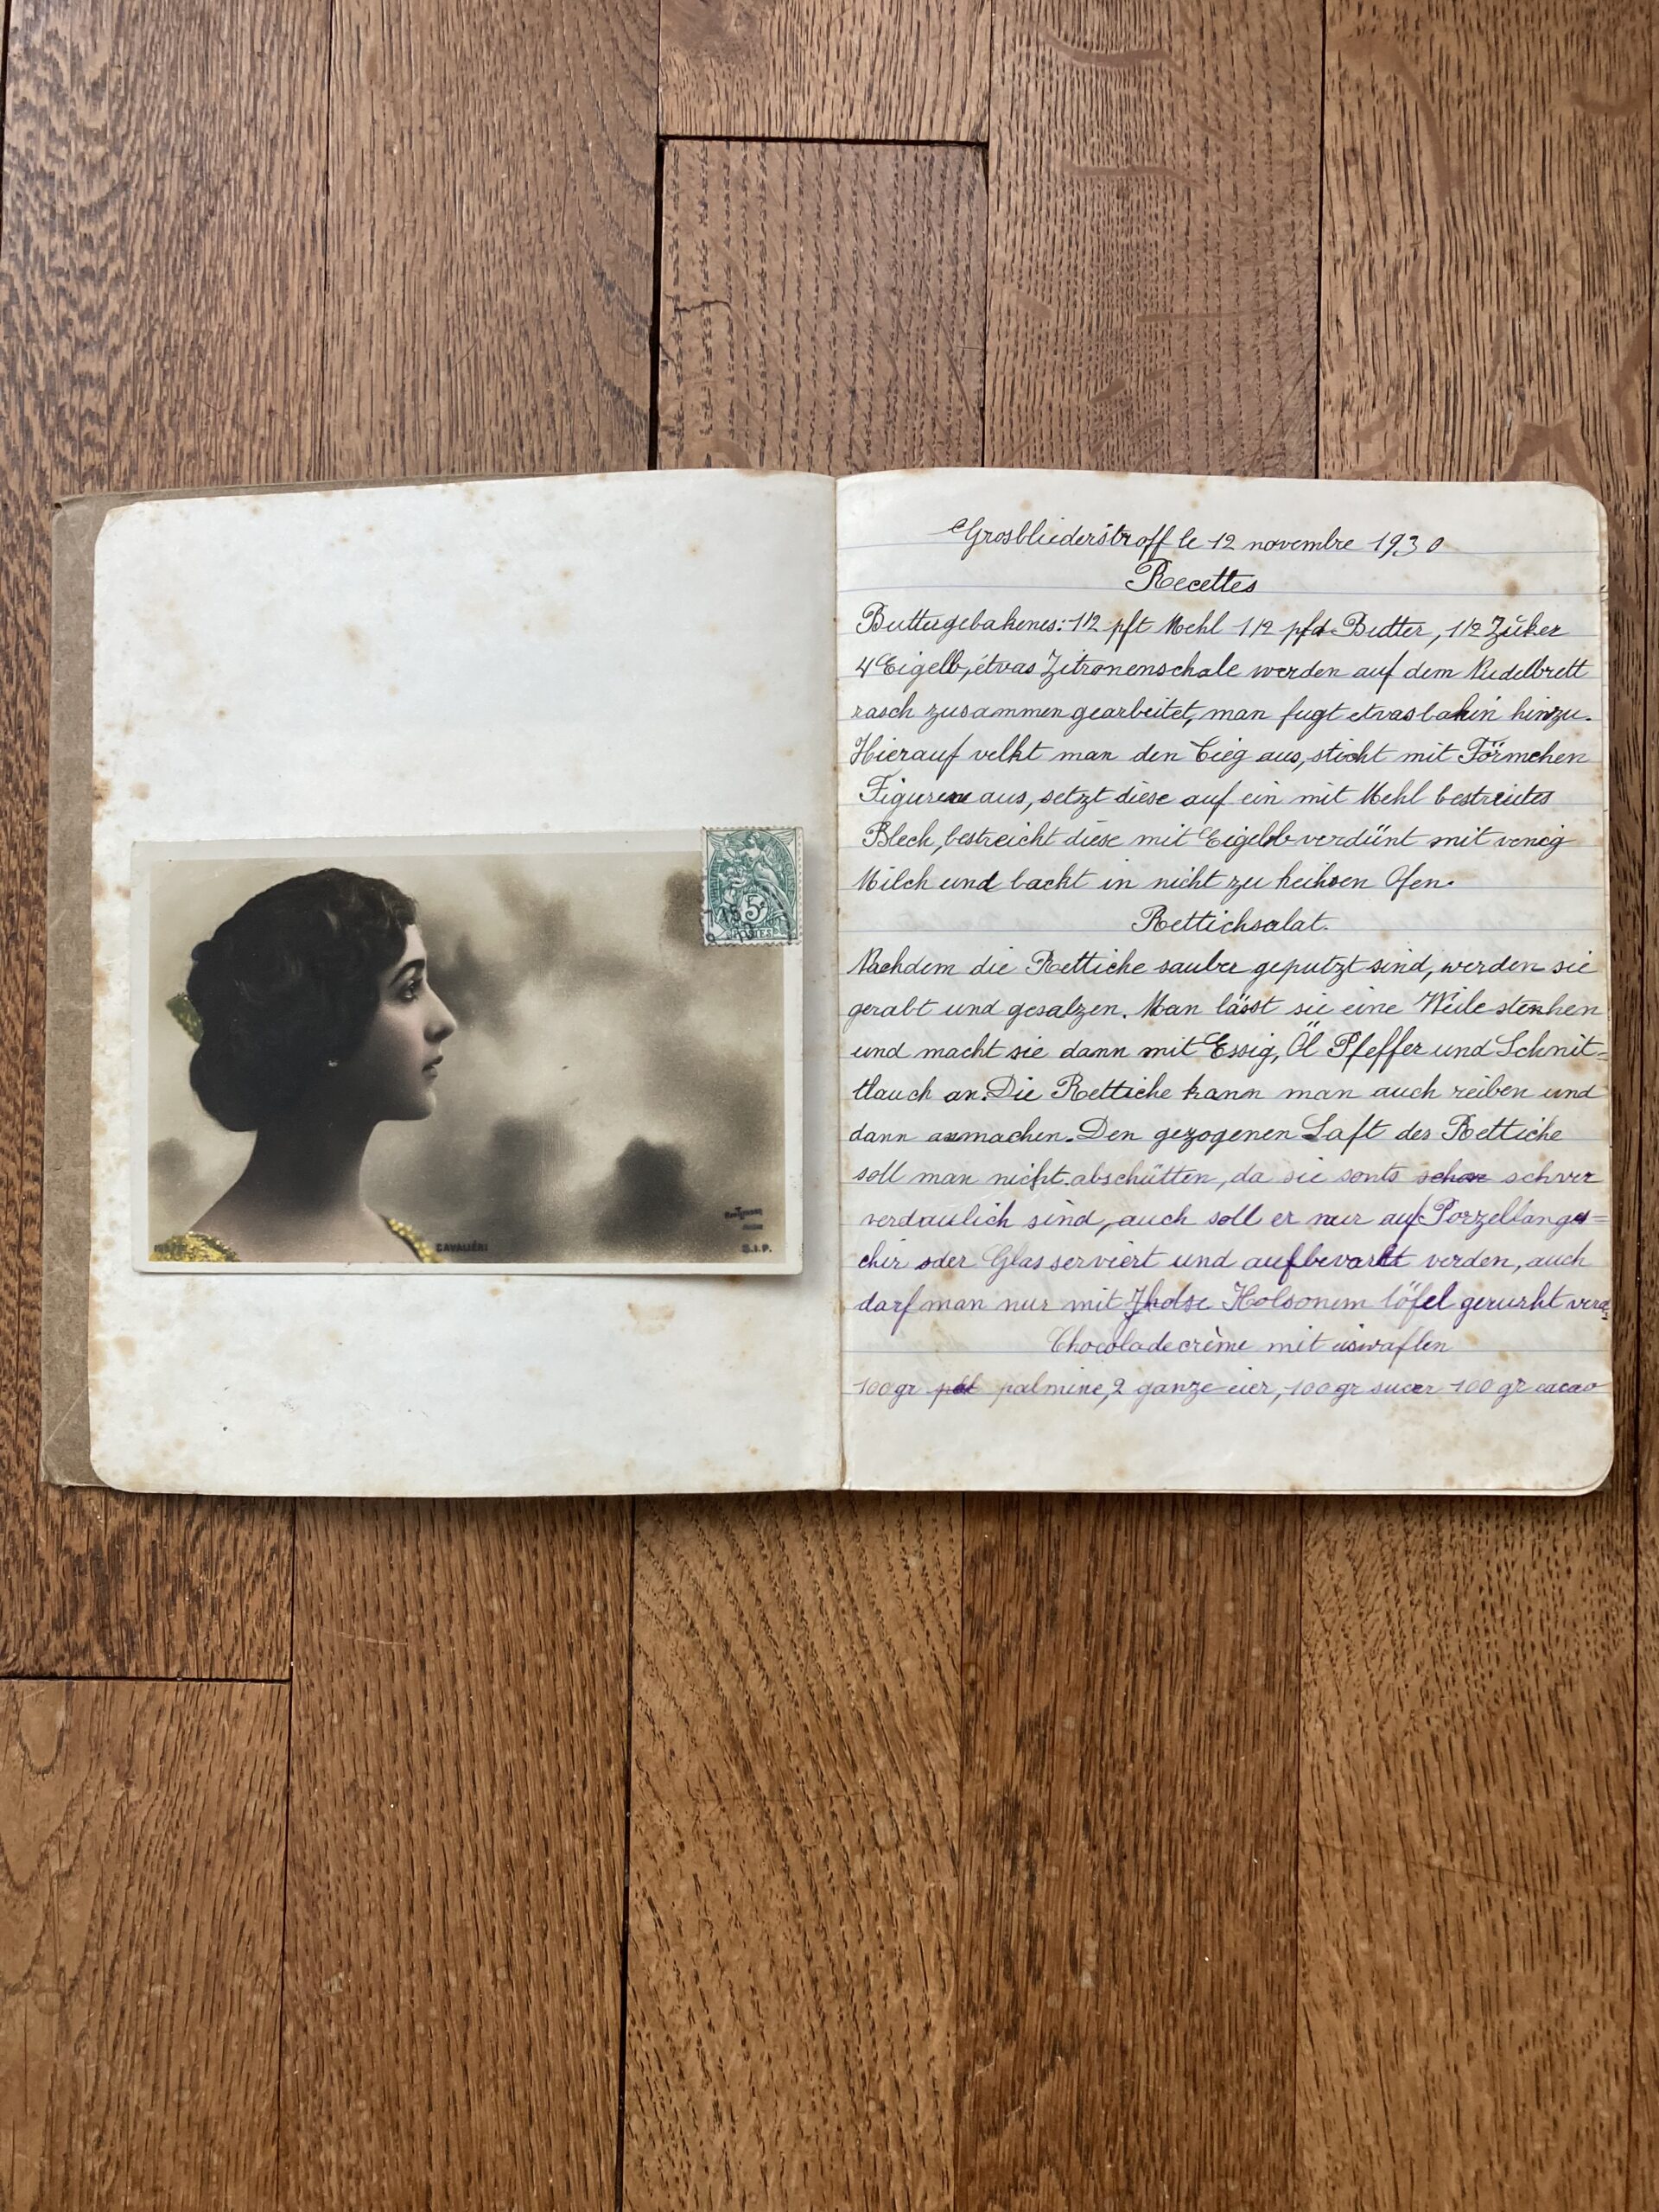 5c
POSTES
CAVALIÉRI
S.I.P.
Grosbliederstroff le 12 novembre 1930
Recettes
Buttergebakenes: 1/2 pft Mehl 1/2 pfd Butter, 1/2 Zuker
4 Eigelb, etvas Zitronenschale werden auf dem Nudelbrett
rasch zusammen gearbeitet, man fugt etvas hinzu.
Hierauf velkt man den Tieg aus, sticht mit Förmchen
Figuren aus, setzt diese auf ein mit Mehl bestreutes
Blech, bestreicht diese mit Eigelb verdünt mit venig
Milch und backt in nicht zu heihsen Ofen.
Rettichsalat.
Nachdem die Rettiche sauber geputzt sind, werden sie
gerabt und gesalzen. Man lässt sie eine Weile stenhen
und macht sie dann mit Essig, Öl Pfeffer und Schnit=
tlauch an. Die Rettiche kann man auch reiben und
dann anmachen. Den gezogenen Saft des Rettiche
soll man nicht abschütten, da sie sonts schver
verdaulich sind, auch soll er nur auf Porzellanges=
chir oder Glas serviert und aufbevarht verden, auch
darf man nur mit Holsonem löfel gerurht verd=
Chocoladecrème mit eiswaflen
100 gr palmine, 2 ganze eier, 100 gr sucer 100 gr cacao